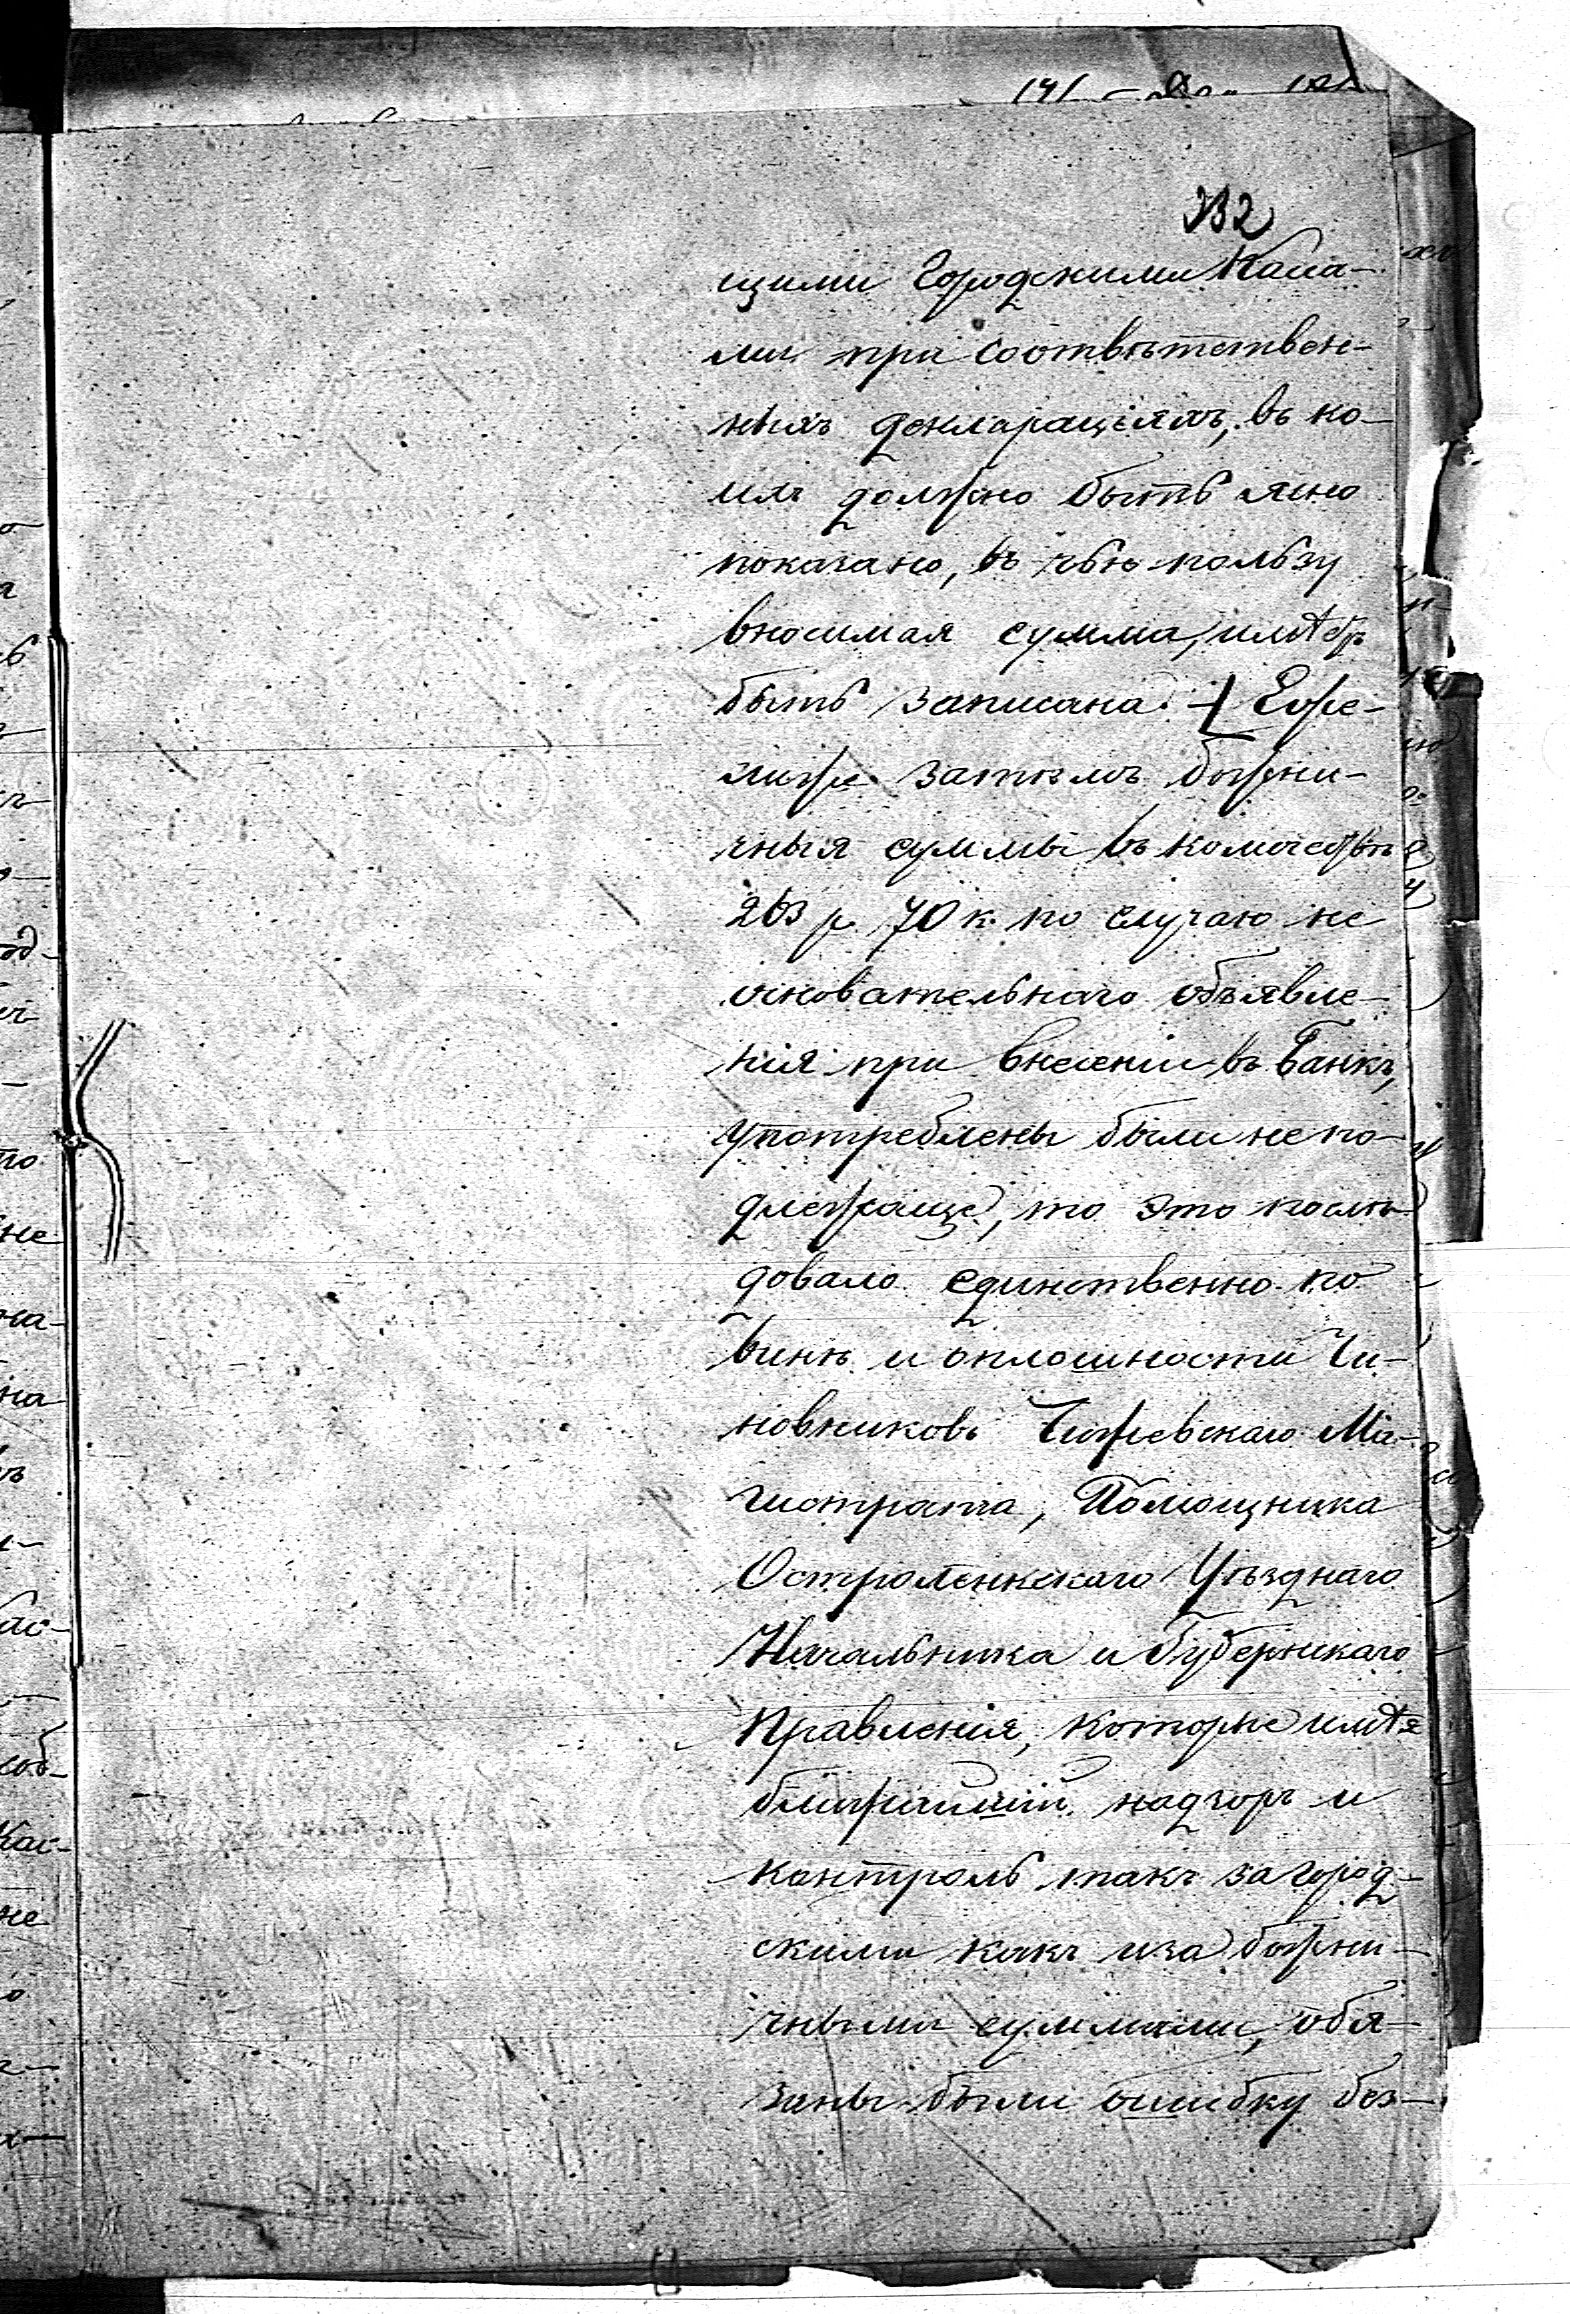 332
щими Городскими Касса-
ми при соотвѣтствен-
ныхъ деклараціяхъ, въ ко-
ихъ должно быть ясно
показано, въ чью пользу
вносимая сумма, имѣетъ
быть записана. Еже-
лиже затѣмъ божни-
чныя суммы въ количествѣ
263 р. 70 к. по случаю не
основательнаго объявле-
нія при внесеніи въ Банкъ,
употреблены были непо-
длежаще, то это послѣ-
довало единственно по
винѣ и оплошности Чи-
новниковъ Чижевскаго Ма-
гистрата, Помощника
Остроленкскаго Уѣзднаго
Начальника и Губернскаго
Правленія, которые имѣя
ближайшій надзоръ и
контроль такъ за город-
скими какъ и за божни-
чными суммами, обя-
заны были ошибку без-